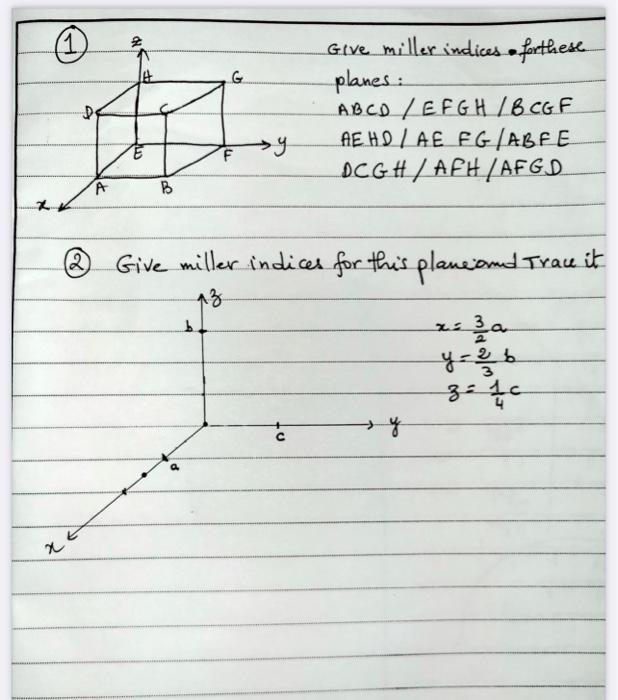 1
Give miller indices for these
planes :
ABCD / EFGH / BCGF
AEHD / AE FG / ABFE
DCGH / AFH / AFGD
z
H
G
D
C
E
F
y
A
B
x
2 Give miller indices for this plane and Trace it
z
b
x = 3/2 a
y = 2/3 b
z = 1/4 c
c
y
a
x